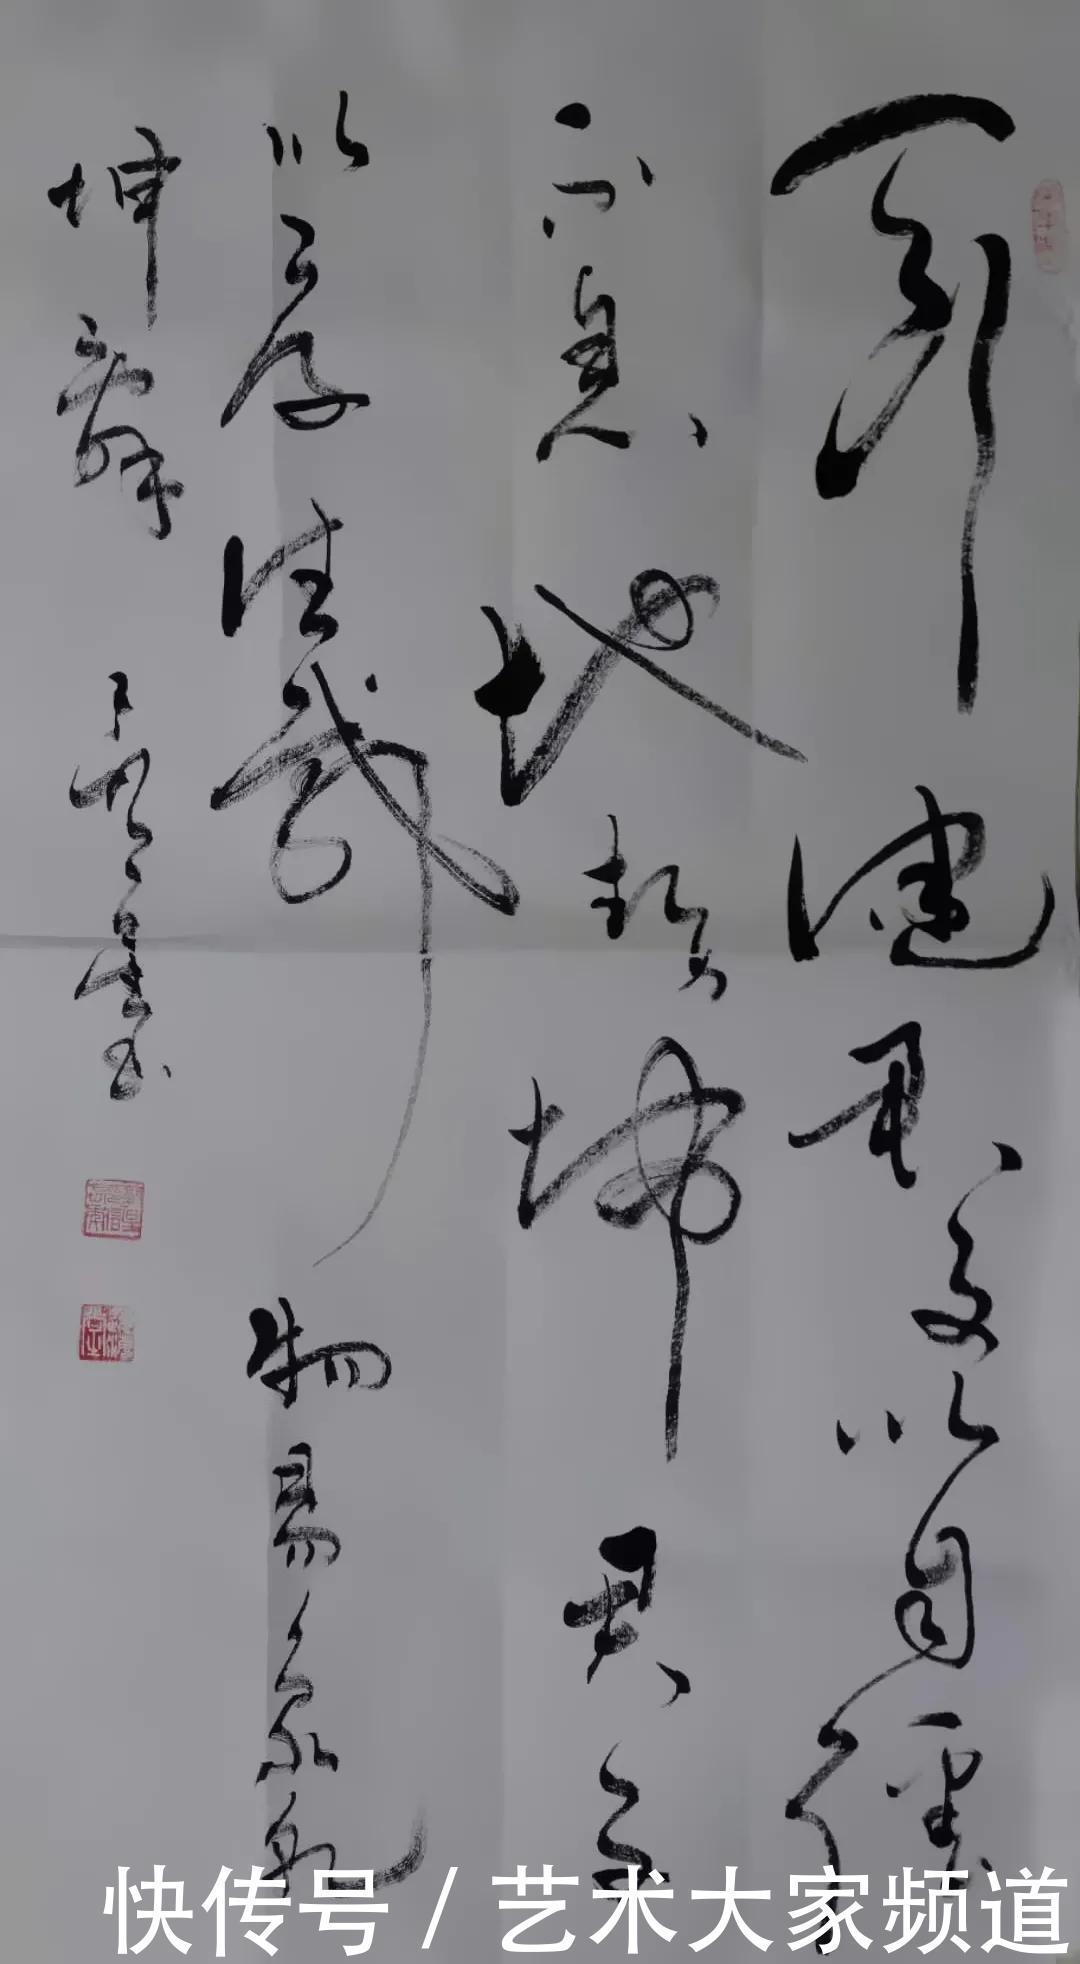 天行健君子以自强
不息地势坤君子
以厚德载物易象乾
坤辞
快传号 / 艺术大家频道